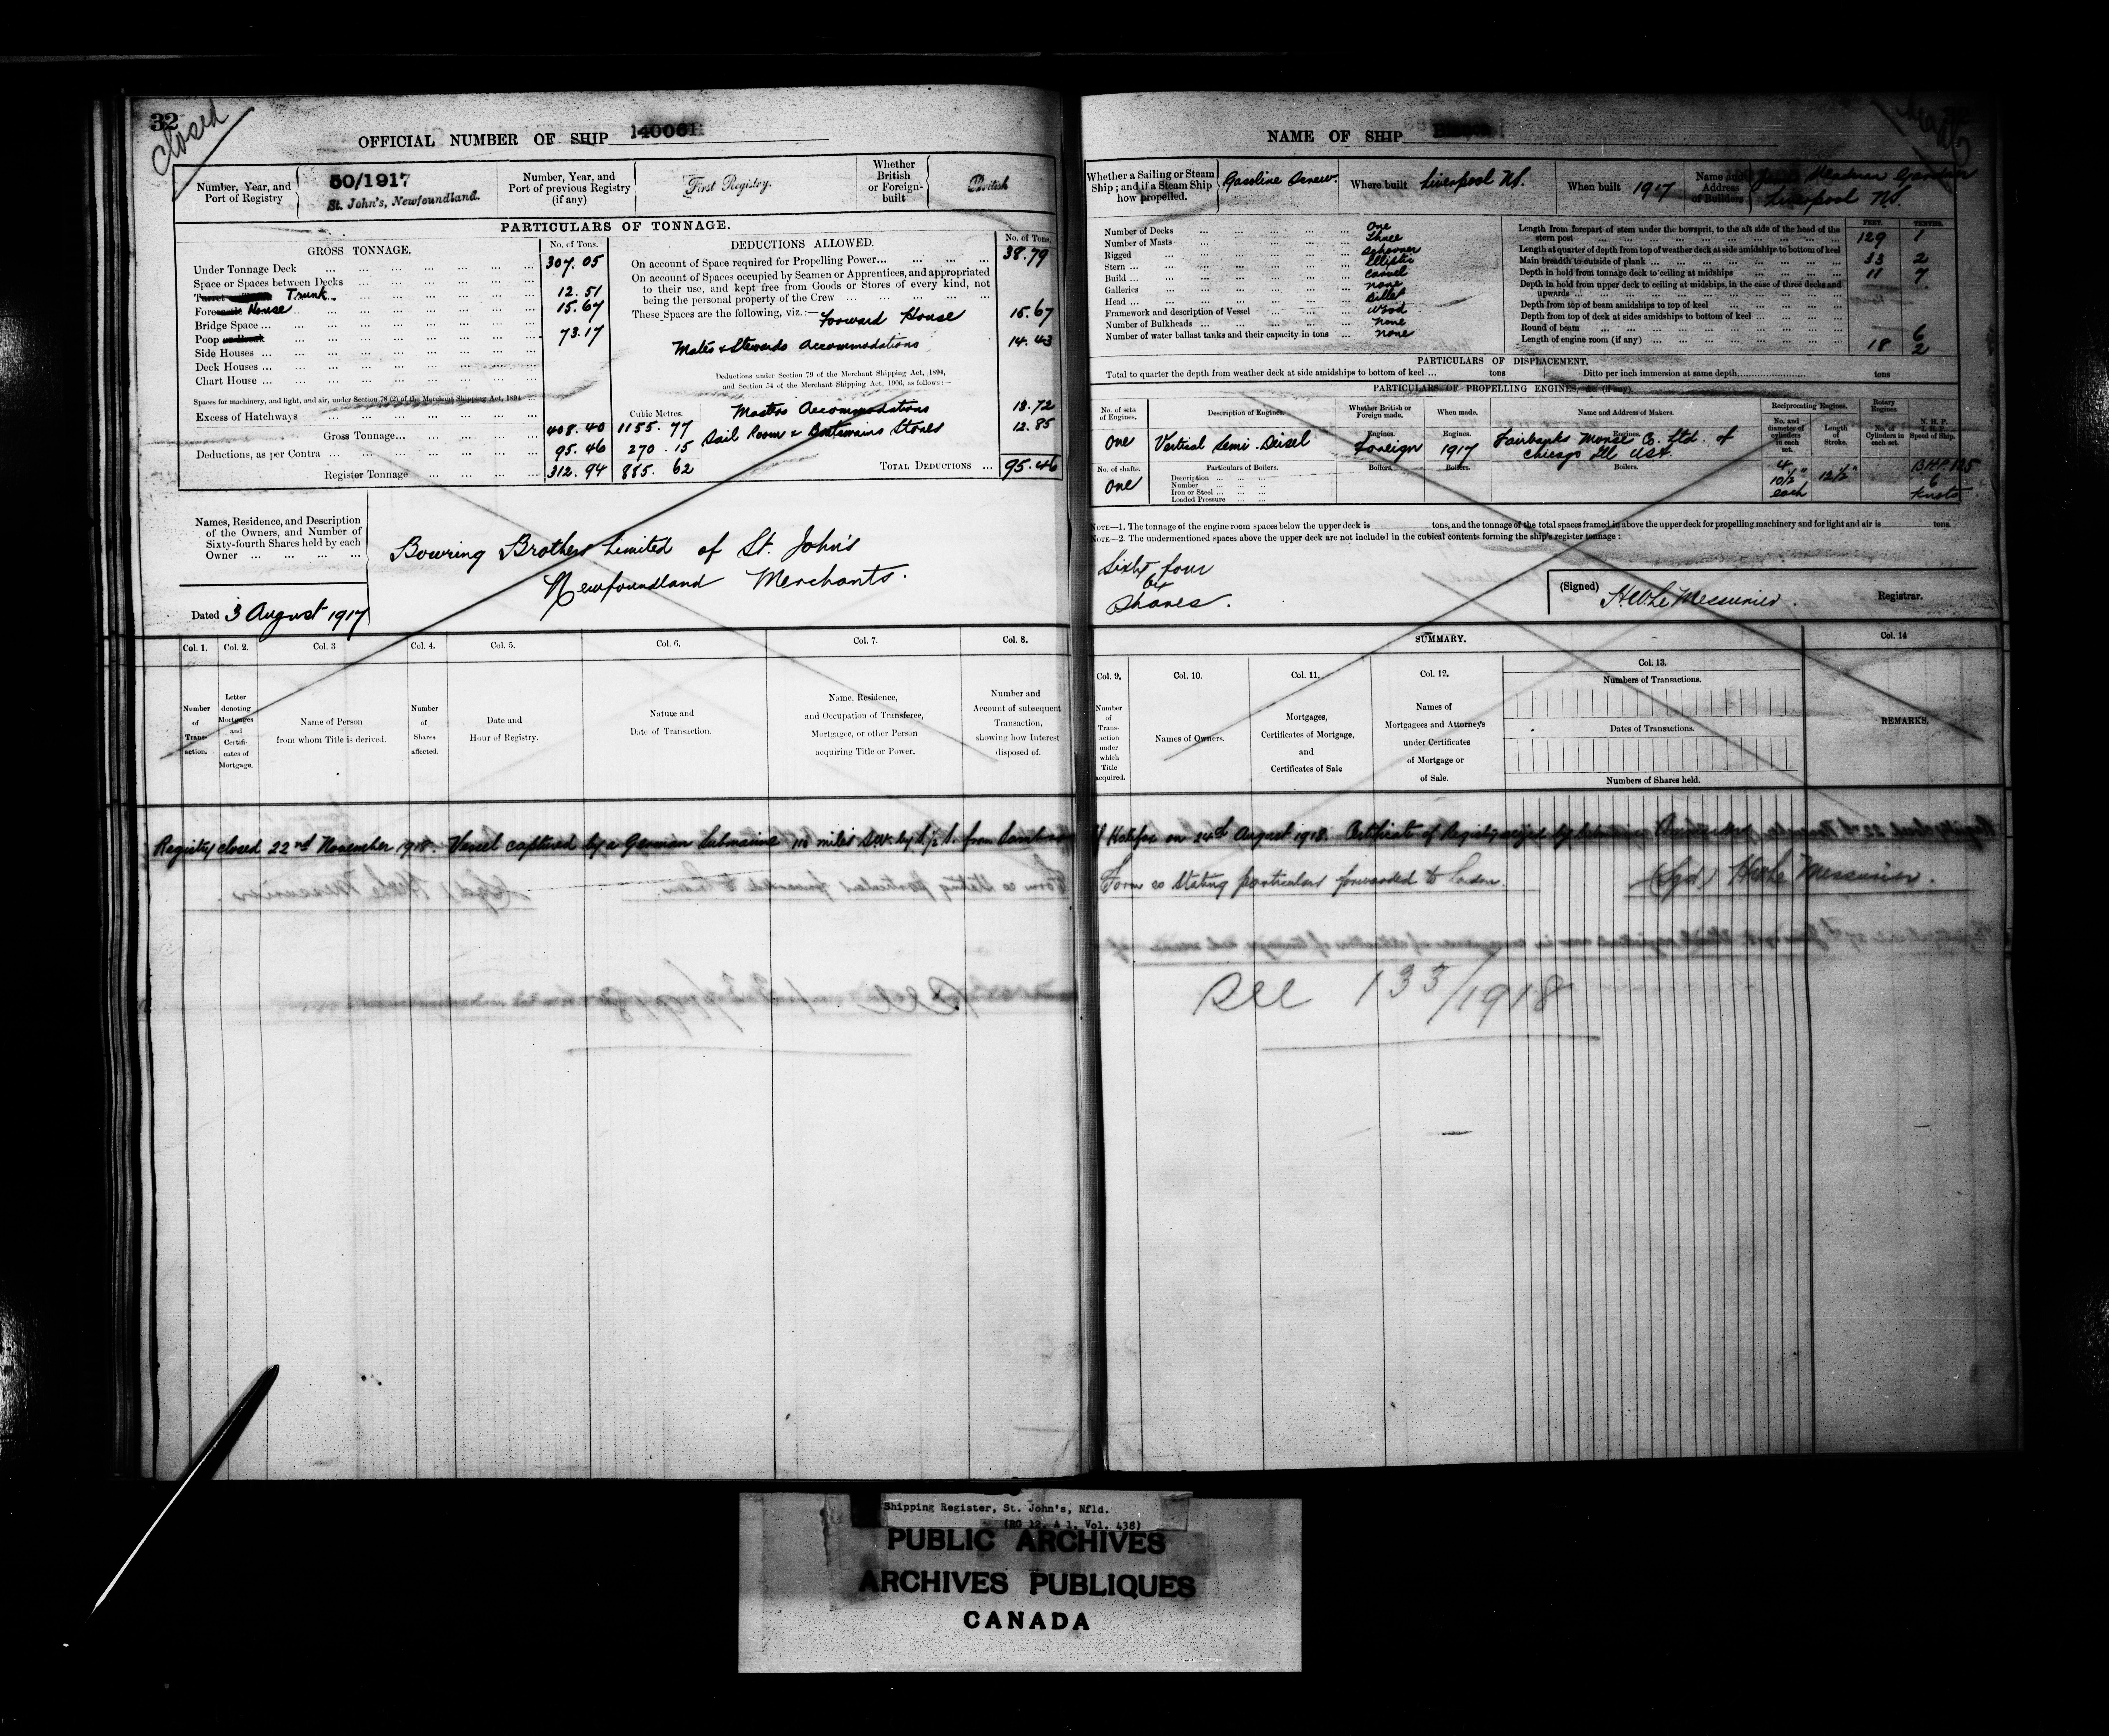 32
Closed
OFFICIAL NUMBER OF SHIP 140061
Number, Year, and Port of Registry
50/1917
St. John's, Newfoundland.
Number, Year, and Port of previous Registry (if any)
First Registry.
Whether British or Foreign-built
British
PARTICULARS OF TONNAGE.
GROSS TONNAGE.
No. of Tons.
Under Tonnage Deck 307.05
Space or Spaces between Decks
Turret Trunk 12.51
Forecastle House 15.67
Bridge Space
Poop 73.17
Side Houses
Deck Houses
Chart House
Spaces for machinery, and light, and air, under Section 78 (2) of the Merchant Shipping Act, 1894
Excess of Hatchways
Cubic Metres.
Gross Tonnage 408.40 1155.77
Deductions, as per Contra 95.46 270.15
Register Tonnage 312.94 885.62
DEDUCTIONS ALLOWED.
No. of Tons.
On account of Space required for Propelling Power 38.79
On account of Spaces occupied by Seamen or Apprentices, and appropriated
to their use, and kept free from Goods or Stores of every kind, not
being the personal property of the Crew
These Spaces are the following, viz.:—
Forward House 15.67
Mates & Stewards Accommodations 14.43
Deductions under Section 79 of the Merchant Shipping Act, 1894,
and Section 54 of the Merchant Shipping Act, 1906, as follows:—
Masters Accommodations 13.72
Sail Room & Boatswains Stores 12.85
TOTAL DEDUCTIONS 95.46
Names, Residence, and Description
of the Owners, and Number of
Sixty-fourth Shares held by each
Owner
Bowring Brothers Limited of St. John's
Newfoundland Merchants.
Dated 3 August 1917
Col. 1. Col. 2. Col. 3 Col. 4. Col. 5. Col. 6. Col. 7. Col. 8.
Number of Transaction.
Letter denoting Mortgages and Certificates of Mortgage.
Name of Person from whom Title is derived.
Number of Shares affected.
Date and Hour of Registry.
Nature and Date of Transaction.
Name, Residence, and Occupation of Transferee, Mortgagee, or other Person acquiring Title or Power.
Number and Account of subsequent Transaction, showing how Interest disposed of.
Registry closed 22nd November 1918. Vessel captured by a German Submarine 110 miles S.W. by S. 1/2 S. from
NAME OF SHIP
Whether a Sailing or Steam Ship; and if a Steam Ship how propelled.
Gasoline Screw.
Where built Liverpool NS.
When built 1917
Name and Address of Builders
Gardner
Liverpool NS.
Number of Decks One
Number of Masts Three
Rigged Schooner
Stern Elliptic
Build Carvel
Galleries none
Head Billet
Framework and description of Vessel Wood
Number of Bulkheads none
Number of water ballast tanks and their capacity in tons none
FEET. TENTHS.
Length from forepart of stem under the bowsprit, to the aft side of the head of the
stern post 129 1
Length at quarter of depth from top of weather deck at side amidships to bottom of keel
Main breadth to outside of plank 33 2
Depth in hold from tonnage deck to ceiling at midships 11 7
Depth in hold from upper deck to ceiling at midships, in the case of three decks and
upwards
Depth from top of beam amidships to top of keel
Depth from top of deck at sides amidships to bottom of keel
Round of beam 6
Length of engine room (if any) 18 2
PARTICULARS OF DISPLACEMENT.
Total to quarter the depth from weather deck at side amidships to bottom of keel ... tons
Ditto per inch immersion at same depth tons
PARTICULARS OF PROPELLING ENGINES, &c. (if any).
No. of sets of Engines.
Description of Engines.
Whether British or Foreign made.
When made.
Name and Address of Makers.
Reciprocating Engines.
No. and diameter of cylinders in each set.
Length of Stroke.
Rotary Engines.
No. of Cylinders in each set.
N. H. P.
I. H. P.
Speed of Ship.
One
Vertical Semi-Deisel
Engines.
Foreign
Engines.
1917
Engines.
Fairbanks Morse Co. Ltd. of
Chicago Ill USA
No. of shafts.
One
Particulars of Boilers.
Description
Number
Iron or Steel
Loaded Pressure
Boilers. Boilers. Boilers.
4
10 1/2"
each
12 1/2"
B.H.P. 125
6
Knots
NOTE—1. The tonnage of the engine room spaces below the upper deck is tons, and the tonnage of the total spaces framed in above the upper deck for propelling machinery and for light and air is tons.
NOTE—2. The undermentioned spaces above the upper deck are not included in the cubical contents forming the ship's register tonnage:
Sixty four
64
Shares.
(Signed) H.W. Le Messurier. Registrar.
SUMMARY.
Col. 9. Col. 10. Col. 11. Col. 12. Col. 13. Col. 14
Number of Transaction under which Title acquired.
Names of Owners.
Mortgages, Certificates of Mortgage, and Certificates of Sale
Names of Mortgagees and Attorneys under Certificates of Mortgage or of Sale.
Numbers of Transactions.
Dates of Transactions.
Numbers of Shares held.
REMARKS.
of Halifax on 24th August 1918. Certificate of Registry seized by
Form 20 stating particulars forwarded to London.
(Sgd) H.W. Le Messurier.
See 133/1918
Shipping Register, St. John's, Nfld.
(RG 12, A 1, Vol. 438)
PUBLIC ARCHIVES
ARCHIVES PUBLIQUES
CANADA